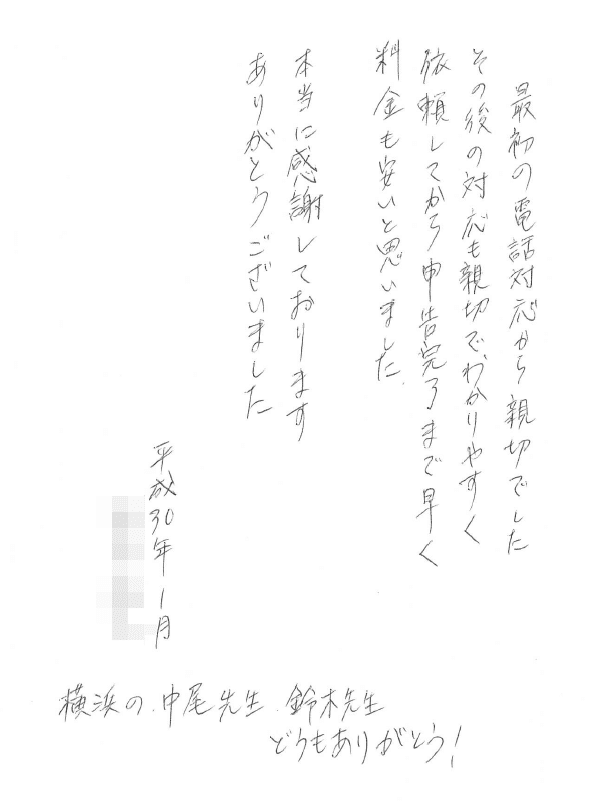 最初の電話対応から親切でした
その後の対応も親切で、わかりやすく
依頼してから申告完了まで早く
料金も安いと思いました。
本当に感謝しております
ありがとうございました
平成30年1月
横浜の中尾先生 鈴木先生
どうもありがとう！